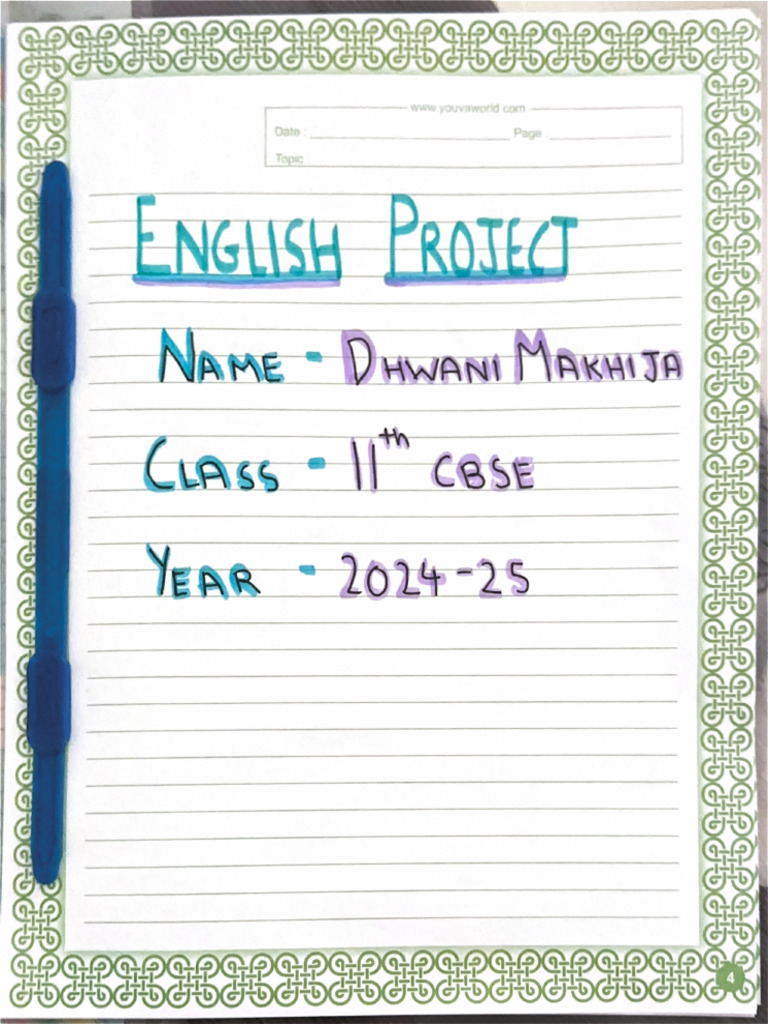 www.youvaworld.com
Date : Page :
Topic
ENGLISH PROJECT
NAME - DHWANI MAKHIJA
CLASS - 11th CBSE
YEAR - 2024-25
4